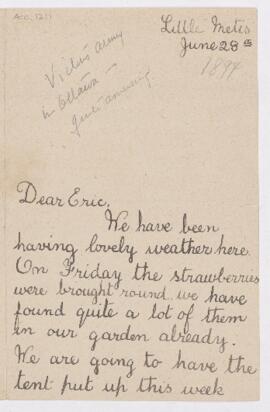 Acc. 1211
Little Metis
June 28th
1894
army
in Ottawa —
quite amusing
Dear Eric,
We have been
having lovely weather here
On Friday the strawberries
were brought round we have
found quite a lot of them
in our garden already.
We are going to have the
tent put up this week